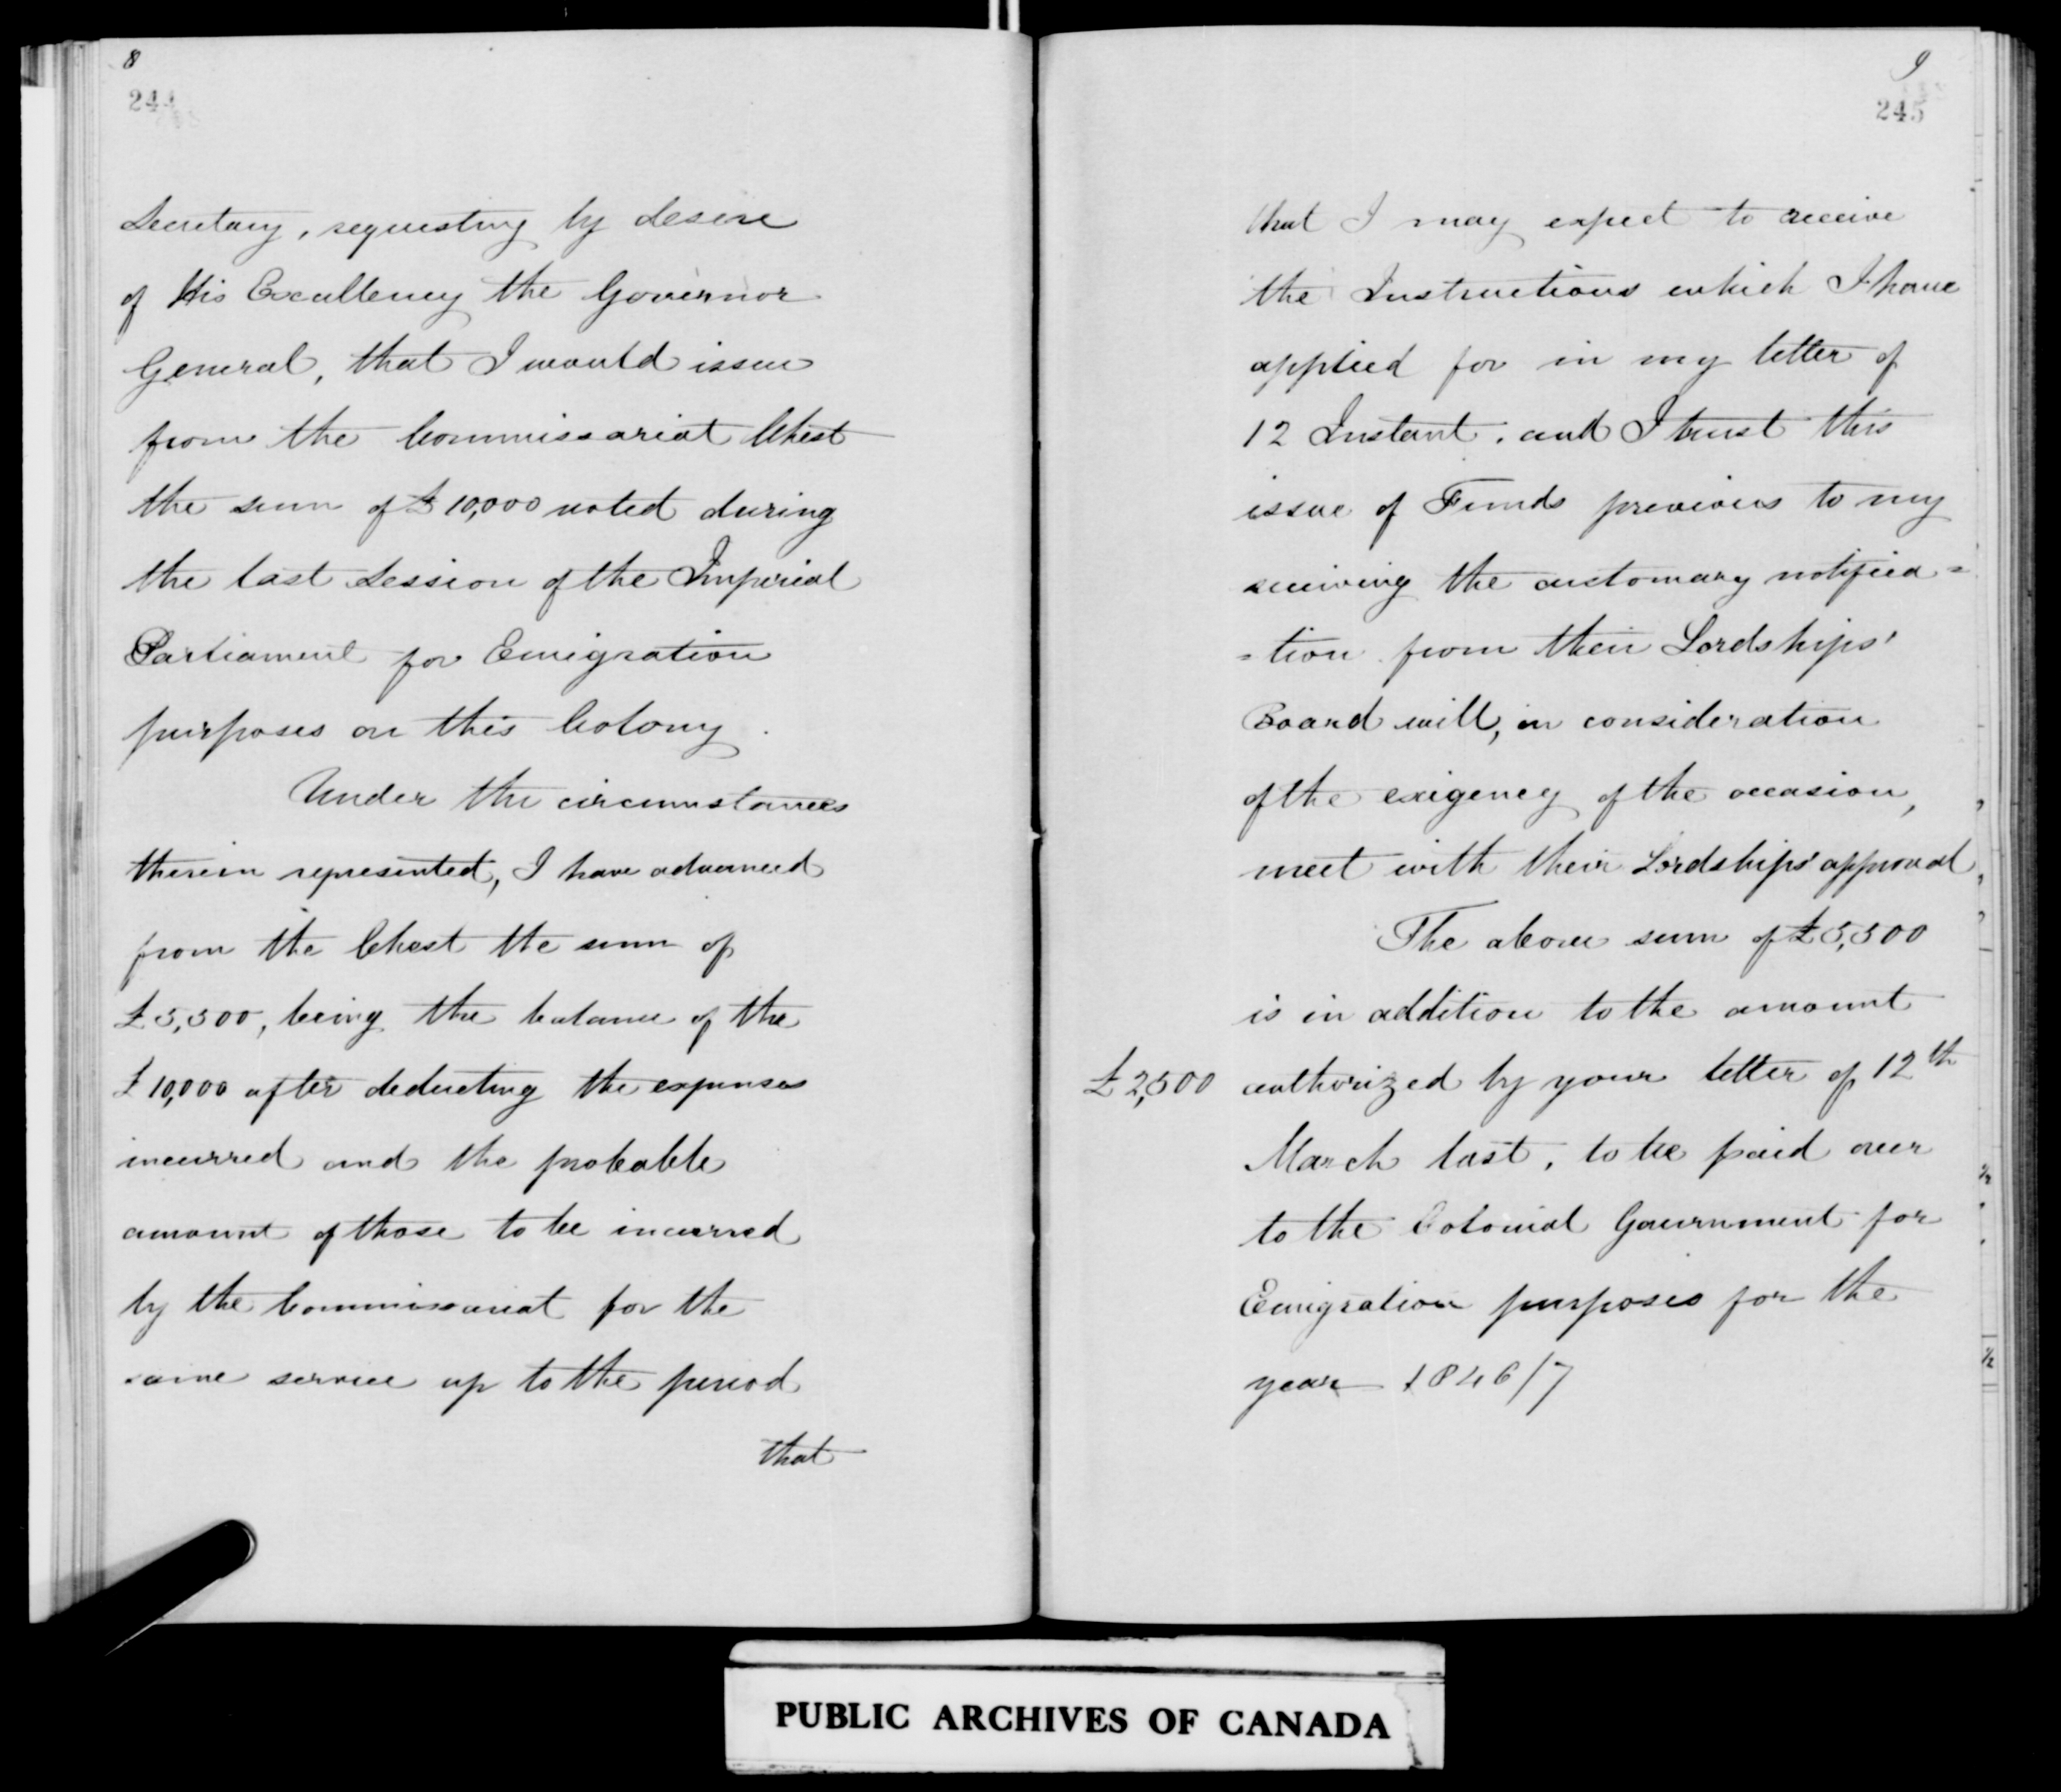 8
244
Secretary, requesting by desire
of His Excellency the Governor
General, that I would issue
from the Commissariat Chest
the sum of £10,000 voted during
the last Session of the Imperial
Parliament for Emigration
purposes on this Colony.
Under the circumstances
therein represented, I have advanced
from the Chest the sum of
£5,500, being the balance of the
£10,000 after deducting the expenses
incurred and the probable
amount of those to be incurred
by the Commissariat for the
same service up to the period
that
9
245
that I may expect to receive
the Instructions which I have
applied for in my letter of
12 Instant. and I trust this
issue of Funds previous to my
receiving the customary notifica=
=tion from their Lordships'
Board will, in consideration
of the exigency of the occasion,
meet with their Lordships' approval
The above sum of £5,500
is in addition to the amount
£2,500 authorized by your letter of 12th
March last, to be paid over
to the Colonial Government for
Emigration purposes for the
year 1846/7
PUBLIC ARCHIVES OF CANADA